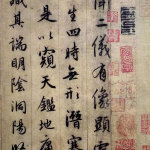 聞二儀有像顯覆
生四時無形潛寒
是以窺天鑑地庸
識其端明陰洞陽賢